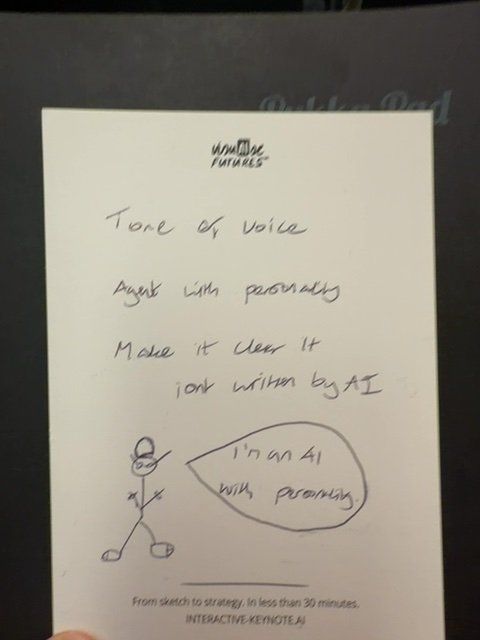 Pukka Pad
visualise
FUTURES
Tone of voice
Agent with personality
Make it clear It
isnt written by AI
I'm an AI
with personality.
From sketch to strategy. In less than 30 minutes.
INTERACTIVE-KEYNOTE.AI